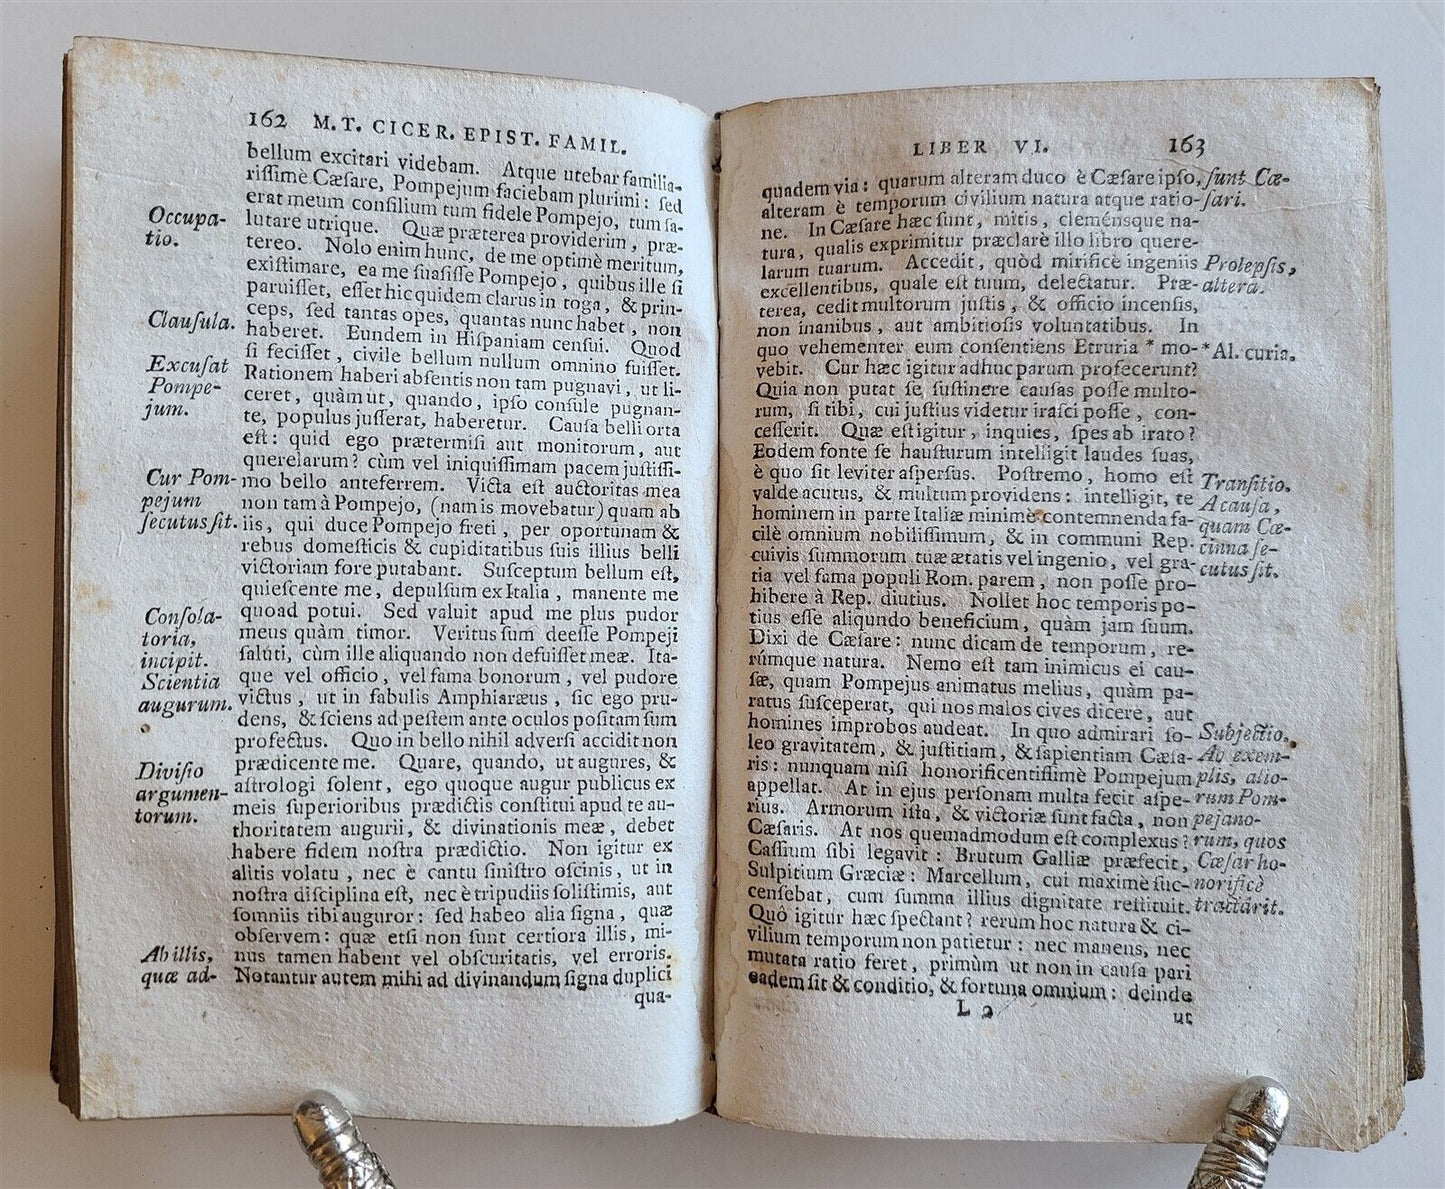 162 M. T. CICER. EPIST. FAMIL.
bellum excitari videbam. Atque utebar familia-
riſſimè Cæſare, Pompejum faciebam plurimi: ſed
erat meum conſilium tum fidele Pompejo, tum ſa-
Occupa-
tio.
lutare utrique. Quæ præterea providerim, præ-
tereo. Nolo enim hunc, de me optimè meritum,
exiſtimare, ea me ſuaſiſſe Pompejo, quibus ille ſi
paruiſſet, eſſet hic quidem clarus in toga, & prin-
Clauſula.
ceps, ſed tantas opes, quantas nunc habet, non
haberet. Eundem in Hiſpaniam cenſui. Quod
ſi feciſſet, civile bellum nullum omnino fuiſſet.
Excuſat
Pompe-
jum.
Rationem haberi abſentis non tam pugnavi, ut li-
ceret, quàm ut, quando, ipſo conſule pugnan-
te, populus juſſerat, haberetur. Cauſa belli orta
eſt: quid ego prætermiſi aut monitorum, aut
querelarum? cùm vel iniquiſſimam pacem juſtiſſi-
Cur Pom-
pejum
ſecutus ſit.
mo bello anteferrem. Victa eſt auctoritas mea
non tam à Pompejo, (nam is movebatur) quam ab
iis, qui duce Pompejo freti, per oportunam &
rebus domeſticis & cupiditatibus ſuis illius belli
victoriam fore putabant. Suſceptum bellum eſt,
quieſcente me, depulſum ex Italia, manente me
Conſola-
toria,
incipit.
Scientia
augurum.
quoad potui. Sed valuit apud me plus pudor
meus quàm timor. Veritus ſum deeſſe Pompeji
ſaluti, cùm ille aliquando non defuiſſet meæ. Ita-
que vel officio, vel fama bonorum, vel pudore
victus, ut in fabulis Amphiaræus, ſic ego pru-
dens, & ſciens ad peſtem ante oculos poſitam ſum
profectus. Quo in bello nihil adverſi accidit non
Diviſio
argumen-
torum.
prædicente me. Quare, quando, ut augures, &
aſtrologi ſolent, ego quoque augur publicus ex
meis ſuperioribus prædictis conſtitui apud te au-
thoritatem augurii, & divinationis meæ, debet
habere fidem noſtra prædictio. Non igitur ex
alitis volatu, nec è cantu ſiniſtro oſcinis, ut in
noſtra diſciplina eſt, nec è tripudiis ſoliſtimis, aut
ſomniis tibi auguror: ſed habeo alia ſigna, quæ
obſervem: quæ etſi non ſunt certiora illis, mi-
Ab illis,
quæ ad-
nus tamen habent vel obſcuritatis, vel erroris.
Notantur autem mihi ad divinandum ſigna duplici
qua-
LIBER VI. 163
quadem via: quarum alteram duco è Cæſare ipſo,
ſunt Cæ-
ſari.
alteram è temporum civilium natura atque ratio-
ne. In Cæſare hæc ſunt, mitis, cleménsque na-
tura, qualis exprimitur præclarè illo libro quere-
larum tuarum. Accedit, quòd mirificè ingeniis
Prolepſis,
altera.
excellentibus, quale eſt tuum, delectatur. Præ-
terea, cedit multorum juſtis, & officio incenſis,
non inanibus, aut ambitioſis voluntatibus. In
quo vehementer eum conſentiens Etruria * mo-
* Al. curia.
vebit. Cur hæc igitur adhuc parum profecerunt?
Quia non putat ſe ſuſtinere cauſas poſſe multo-
rum, ſi tibi, cui juſtius videtur iraſci poſſe, con-
ceſſerit. Quæ eſt igitur, inquies, ſpes ab irato?
Eodem fonte ſe hauſturum intelligit laudes ſuas,
è quo ſit leviter aſperſus. Poſtremo, homo eſt
Tranſitio.
A cauſa,
quam Cæ-
cinna ſe-
cutus ſit.
valde acutus, & multum providens: intelligit, te
hominem in parte Italiæ minimè contemnenda fa-
cilè omnium nobiliſſimum, & in communi Rep.
cuivis ſummorum tuæ ætatis vel ingenio, vel gra-
tia vel fama populi Rom. parem, non poſſe pro-
hibere à Rep. diutius. Nollet hoc temporis po-
tius eſſe aliqundo beneficium, quàm jam ſuum.
Dixi de Cæſare: nunc dicam de temporum, re-
rúmque natura. Nemo eſt tam inimicus ei cau-
ſæ, quam Pompejus animatus melius, quàm pa-
ratus ſuſceperat, qui nos malos cives dicere, aut
homines improbos audeat. In quo admirari ſo-
Subjectio.
Ab exem-
plis, alio-
rum Pom-
pejano-
rum, quos
Cæſar ho-
norificè
tractarit.
leo gravitatem, & juſtitiam, & ſapientiam Cæſa-
ris: nunquam niſi honorificentiſſimè Pompejum
appellat. At in ejus perſonam multa fecit aſpe-
rius. Armorum iſta, & victoriæ ſunt facta, non
Cæſaris. At nos quemadmodum eſt complexus?
Caſſium ſibi legavit: Brutum Galliæ præfecit,
Sulpitium Græciæ: Marcellum, cui maximè ſuc-
cenſebat, cum ſumma illius dignitate reſtituit.
Quò igitur hæc ſpectant? rerum hoc natura & ci-
vilium temporum non patietur: nec manens, nec
mutata ratio feret, primùm ut non in cauſa pari
eadem ſit & conditio, & fortuna omnium: deinde
L 2
ut